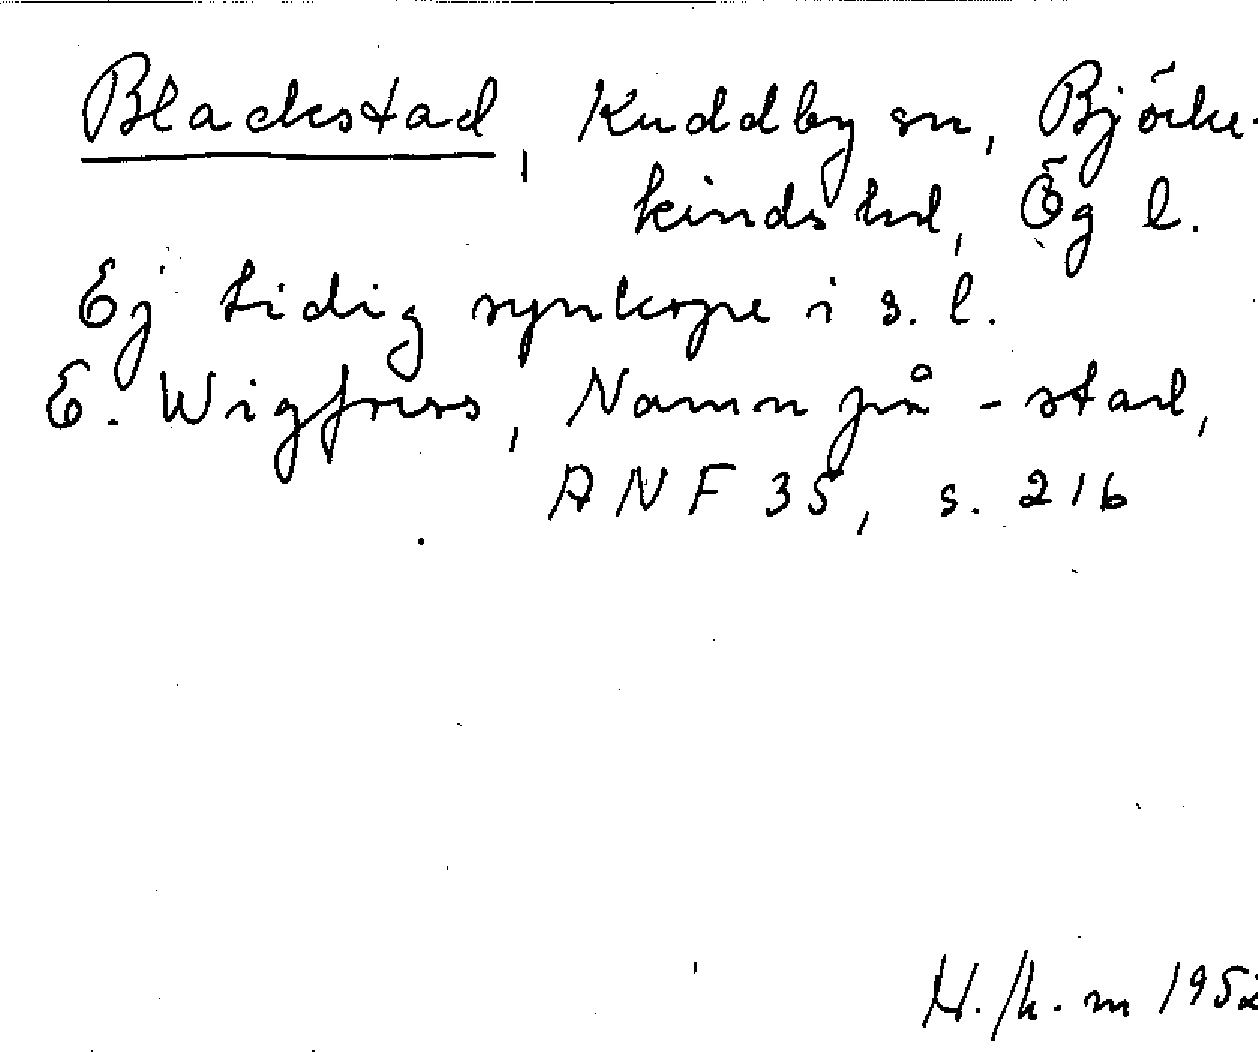 Blackstad, Kuddby sn, Björke-
kinds hd, Ög l.
Ej tidig synkope i s. l.
E. Wigforss, Namn på -stad,
ANF 35, s. 216
m 1952